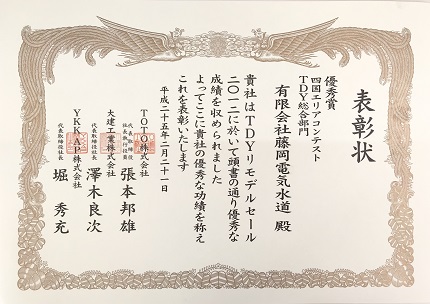 表彰状
優秀賞
四国エリアコンテスト
TDY総合部門
有限会社藤岡電気水道 殿
貴社はTDYリモデルセール
二〇一二に於いて頭書の通り優秀な
成績を収められました
よってここに貴社の優秀な功績を称え
これを表彰いたします
平成二十五年二月二十一日
TOTO株式会社
代表取締役
社長執行役員
張本邦雄
大建工業株式会社
代表取締役社長
澤木良次
YKK AP株式会社
代表取締役社長
堀 秀充